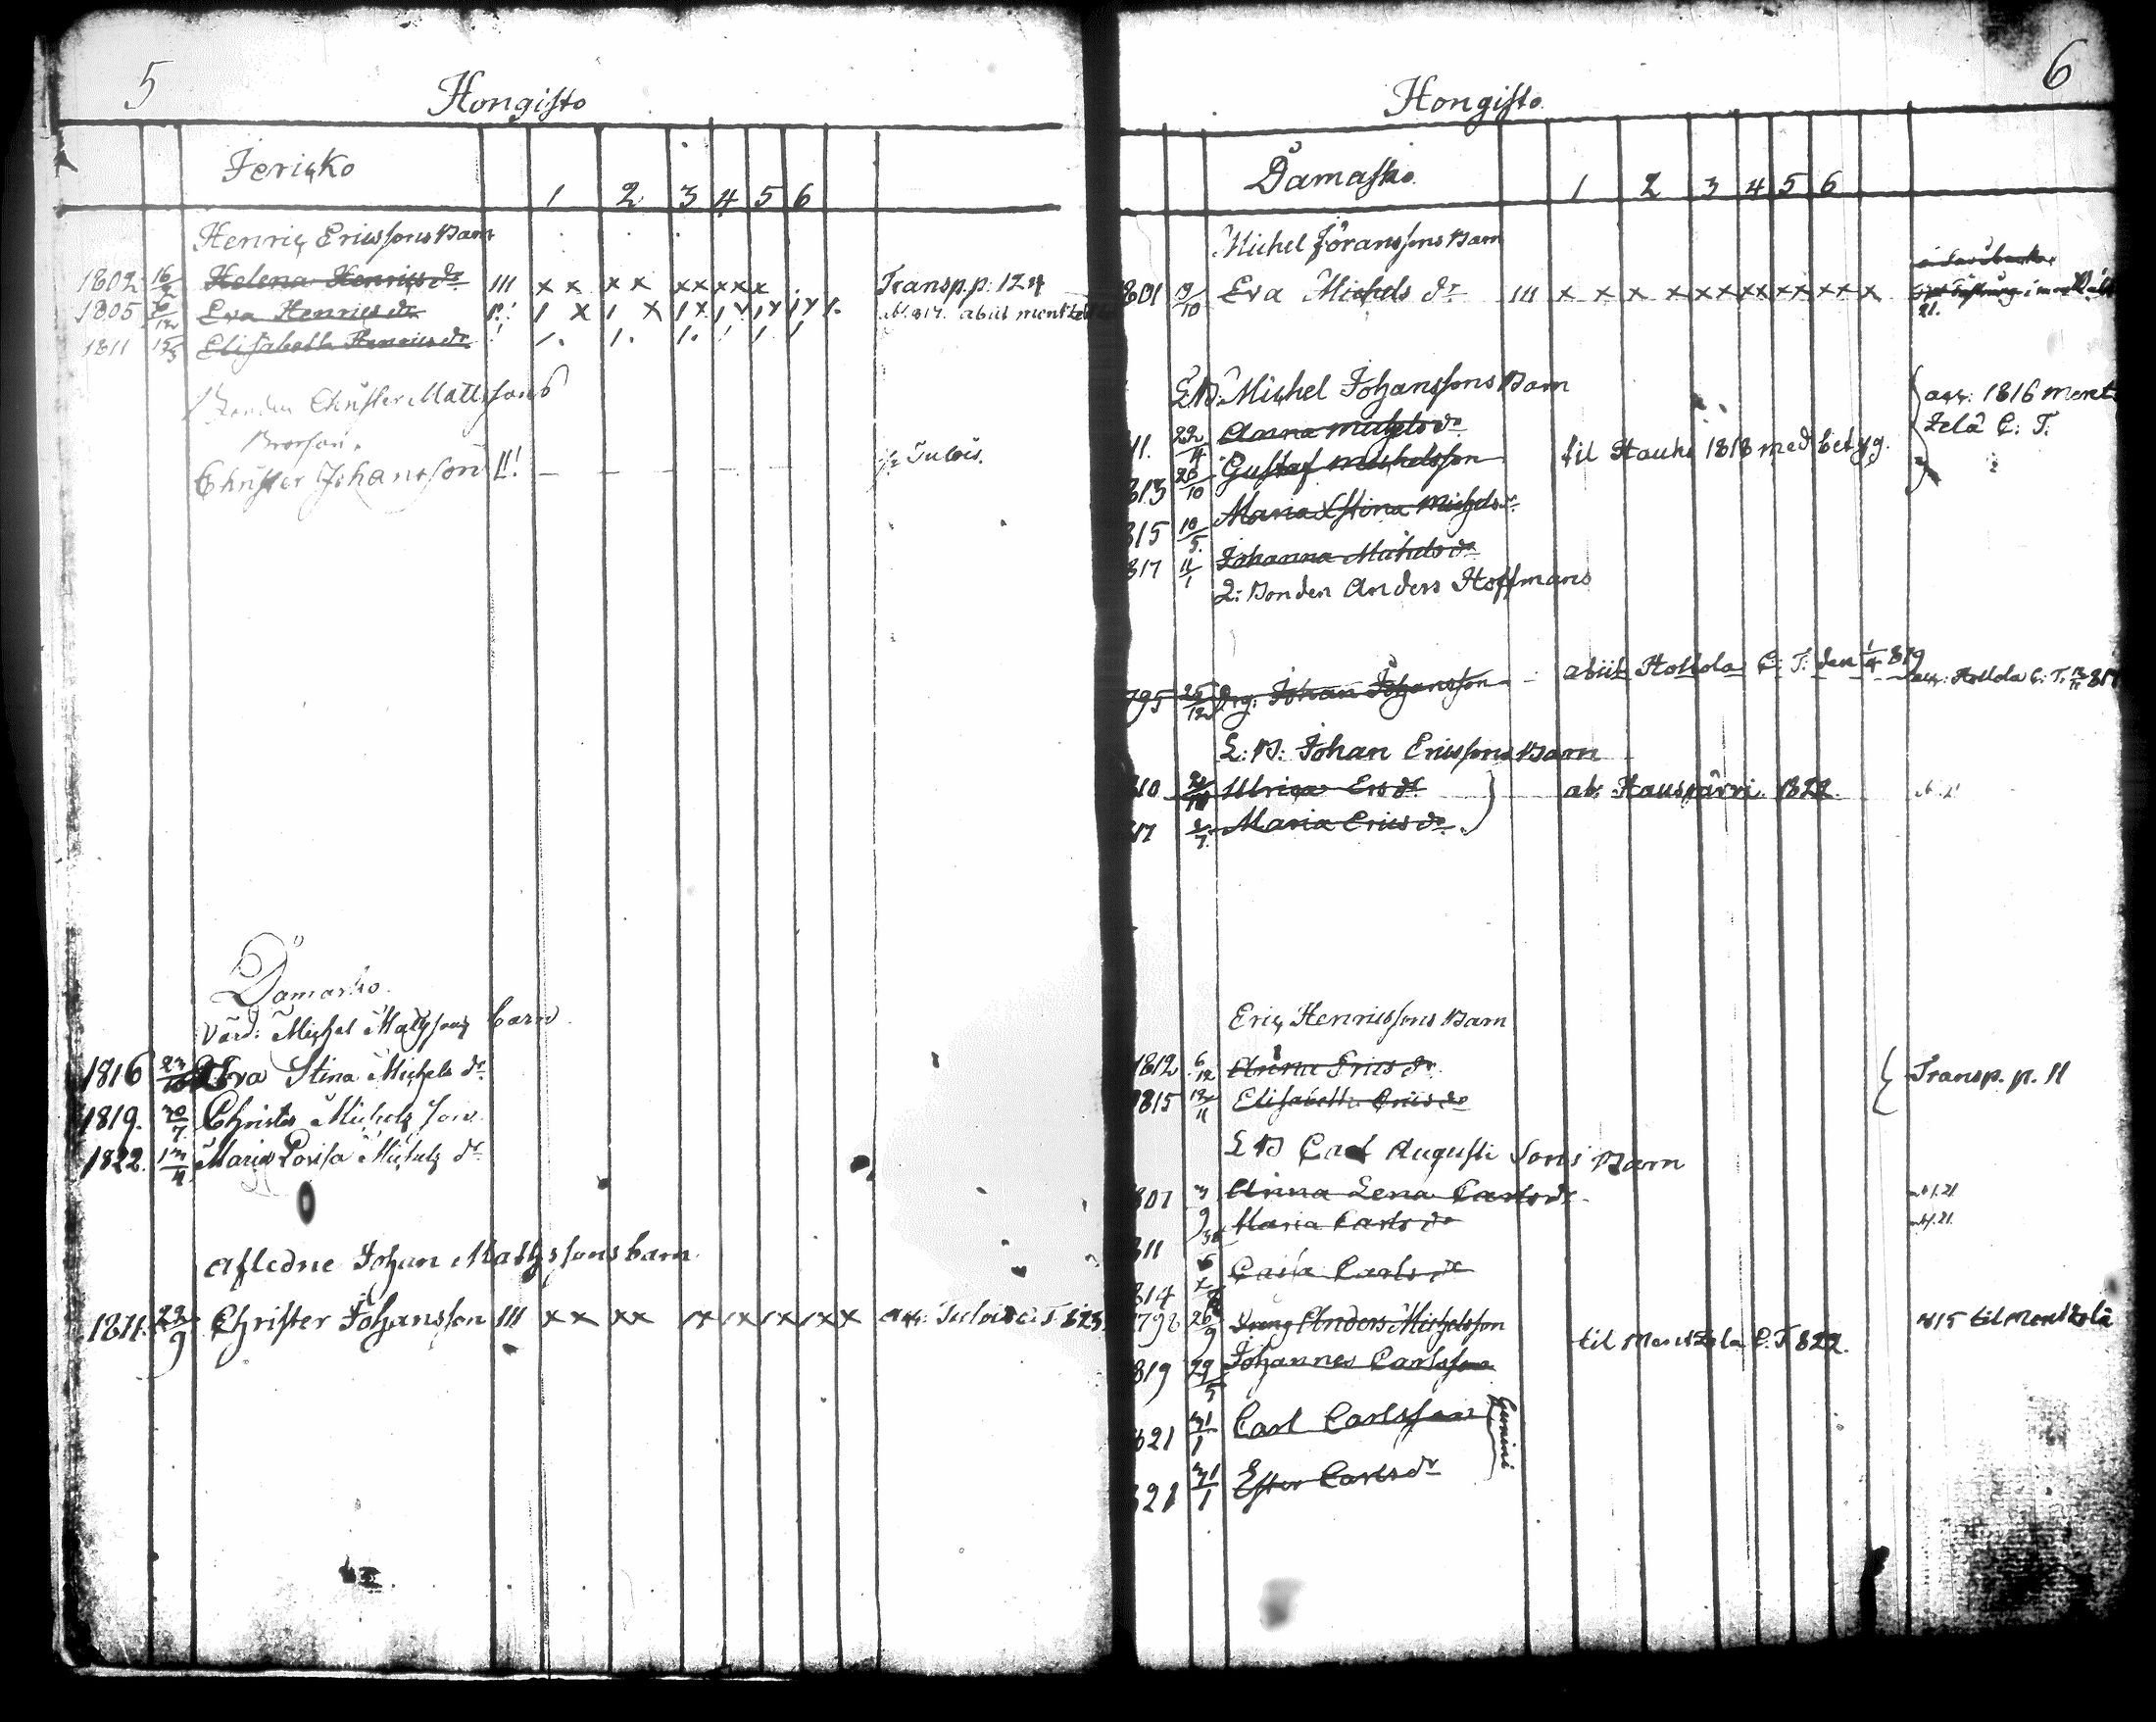 5
Hongisto
Jericko
1 2 3 4 5 6
Henric Ericssons Barn
1802 16 Helena Henrics dr III x x x x x x x x x Transp.p. 124
1805 Eva Henrics dr abiit
1811 15/3 Elisabeth Henrics dr
Bonden Christer Mattssons
Brorson.
Christer Johansson Tulois.
Damasko.
Värd: Michel Matssons barn
1816 Eva Stina Michels dr
1819. 20/7 Christer Michels son
1822. 13/4 Maria Lovisa Michels dr
afledne Johan Matssons barn
1811. 22/9 Christer Johansson III x x x x Tulois C. T. 823.
6
Hongisto
Damasko.
1 2 3 4 5 6
Michel Jöranssons Barn
1801 /10 Eva Michels dr III x x x x x x x x x x x x x
21.
L.B. Michel Johanssons Barn
11. 22/4 Anna Michels dr
813 26/10 Gustaf Michelsson til Hauho 1818 med betyg. acc: 1816 Ment
zelä C: T.
815 10/5 Maria Stina Michels dr
817 11/1 Johanna Michels dr
2: Bonden Anders Hoffmans
795 25/12 Drg: Johan Johansson abiit Hollola C: T: den 1/4 819 acc: Hollola C: T. 817
L: B: Johan Ericssons Barn
810 Ulrica Ers dr ab. Hausjärvi 1822.
17 /7 Maria Erics dr
Eric Henricssons Barn
1812 6/12 Anna Erics dr
1815 12/11 Elisabeth Erics dr Transp. p. 11
L B Carl Augusti Sons Barn
807 3/9 Anna Lena Carls dr
811 Maria Carls dr
814 Caisa Carls dr
1798 26/9 Dreng Anders Michelsson til Mentzelä C. T. 822. 815 til Mentzelä
819 29/5 Johannes Carlsson
821 31/1 Carl Carlsson
Gemini
821 31/1 Ester Carls dr